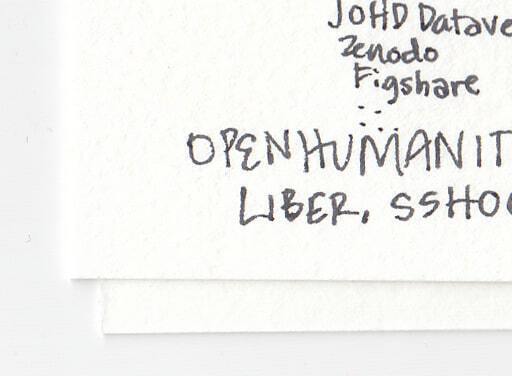 JOHD Datave
Zenodo
Figshare
OPENHUMANIT
LIBER, SSHO